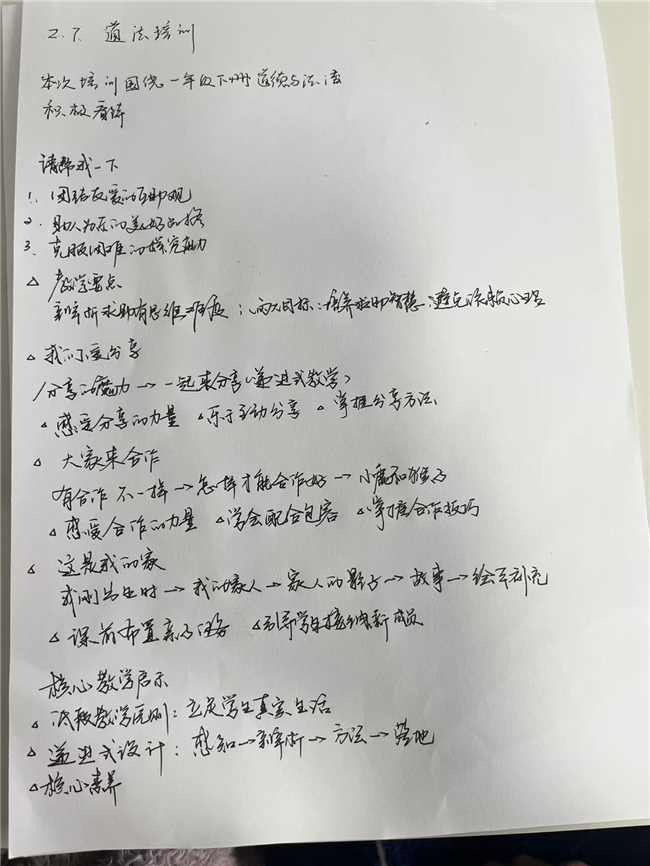 2.7. 道法培训
本次培训围绕一年级下册道德与法治
积极看待
请帮我一下
1. 团结友爱的互助观
2. 助人为乐的美好品格
3. 克服困难的探究能力
△ 教学要点
辩析求助有思维难度；两大目标：培养求助智慧，避免依赖心理
△ 我们爱分享
分享的魔力→一起来分享（递进式教学）
△ 感受分享的力量 △ 乐于主动分享 △ 掌握分享方法
△ 大家来合作
有合作不一样→怎样才能合作好→小鹿和猴子
△ 感受合作的力量 △ 学会配合包容 △ 掌握合作技巧
△ 这是我的家
我刚出生时→我的家人→家人的影子→故事→绘本补充
△ 课前布置亲子任务 △ 引导学生接纳新成员
核心教学启示
△ 教学原则：立足学生真实生活
△ 递进式设计：感知→辩析→方法→落地
△ 核心素养